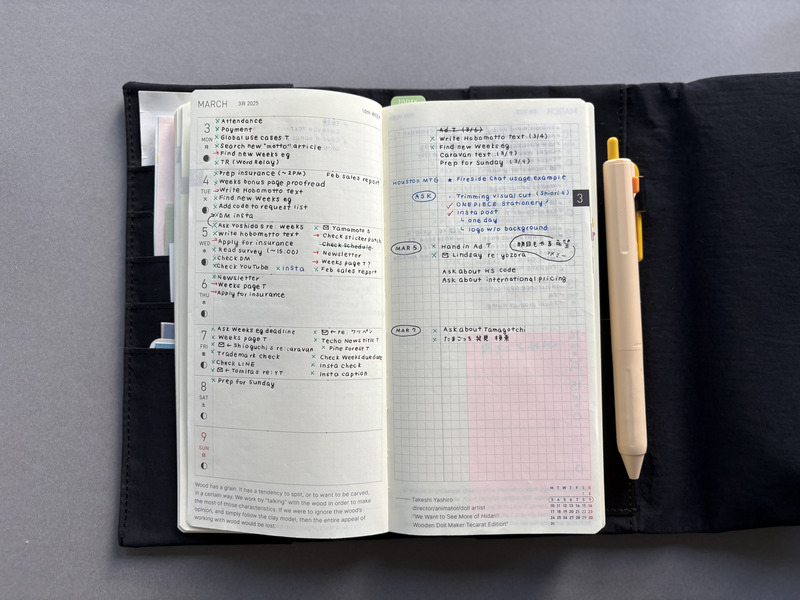 MARCH 3月 2025
3 MON 月
× Attendance
× Payment
× Global use cases T
× Search new "motto" article
→ Find new Weeks eg
× TR (Word Relay)
4 TUE 火
× Prep insurance (~2PM)
Feb sales report
× Weeks bonus page proofread
→ Write Hobomotto text
× Find new Weeks eg
× Add code to request list
DM insta
5 WED 水
× Ask Yoshida s re: weeks
× Write hobomotto text
→ Apply for insurance
× Read survey (~15:00)
× Check DM
× Check YouTube × insta
× ✉ Yamamoto s
→ Check sticker punch
Check schedule
→ Newsletter
→ Weeks page T?
× Feb sales report
6 THU 木
× Newsletter
→ Weeks page T
→ Apply for insurance
7 FRI 金
× Ask Weeks eg deadline
× Weeks page T
× ✉ ← Shioguchi s re: caravan
× Trademark check
× Check LINE
× ✉ ← Tomita s re: YT
× ✉ ← re: ワッペン
× Techo News title T
× Pine Forest T
× Check Weeks due date
× Insta check
× Insta caption
8 SAT 土
× Prep for Sunday
9 SUN 日
Wood has a grain. It has a tendency to split, or to want to be carved,
in a certain way. We work by "talking" with the wood in order to make
the most of those characteristics. If we were to ignore the wood's
opinion, and simply follow the clay model, then the entire appeal of
working with wood would be lost.
TODAY
Ad T (3/6)
× Write Hobomotto text (3/4)
× Find new Weeks eg
Caravan text (3/7)
Prep for Sunday (3/4)
HOUSTON MTG
★ Fireside Chat usage example
ASK
· Trimming visual cut (Shiori s)
✓ ONE PIECE Stationery?
✓ Insta post
↳ one day
↳ logo w/o background
3
MAR 5
× Hand in Ad T
× ✉ Lindsay re: yozora
Ask about HS code
Ask about international pricing
MAR 7
× Ask about Tamagotchi
× たまごっち 発見 検索
Takeshi Yashiro
director/animator/doll artist
"We Want to See More of Hidari!
Wooden Doll Maker Tecarat Edition"
M T W T F S S
1 2
3 4 5 6 7 8 9
10 11 12 13 14 15 16
17 18 19 20 21 22 23
24 25 26 27 28 29 30
31